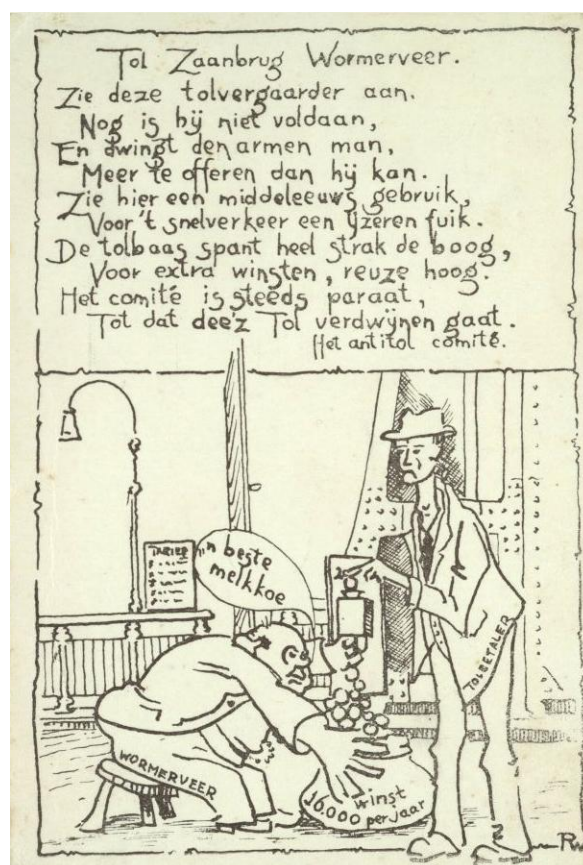 Tol Zaanbrug Wormerveer.
Zie deze tolvergaarder aan.
Nog is hij niet voldaan,
En dwingt den armen man,
Meer te offeren dan hij kan.
Zie hier een middeleeuws gebruik,
Voor 't snelverkeer een ijzeren fuik.
De tolbaas spant heel strak de boog,
Voor extra winsten, reuze hoog.
Het comité is steeds paraat,
Tot dat dee'z Tol verdwijnen gaat.
Het antitol comité.
TARIEF
"'n beste
melkkoe
TOLBETALER
WORMERVEER
winst
16.000 per jaar
R